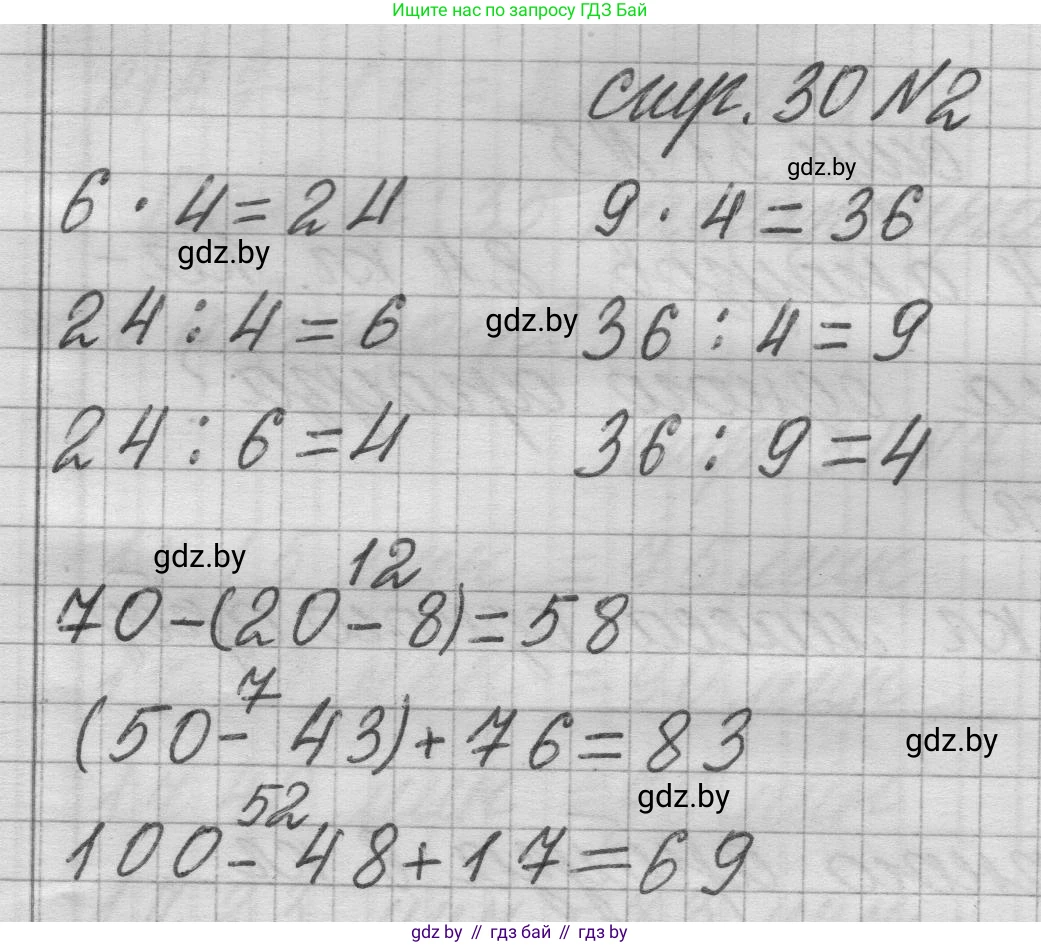 Ищите нас по запросу ГДЗ Бай
стр. 30 №2
gdz.by
6 · 4 = 24 9 · 4 = 36
gdz.by
24 : 4 = 6 gdz.by 36 : 4 = 9
24 : 6 = 4 36 : 9 = 4
gdz.by 12
70 - (20 - 8) = 58
7
(50 - 43) + 76 = 83 gdz.by
52 gdz.by
100 - 48 + 17 = 69
gdz.by // гдз бай // гдз by